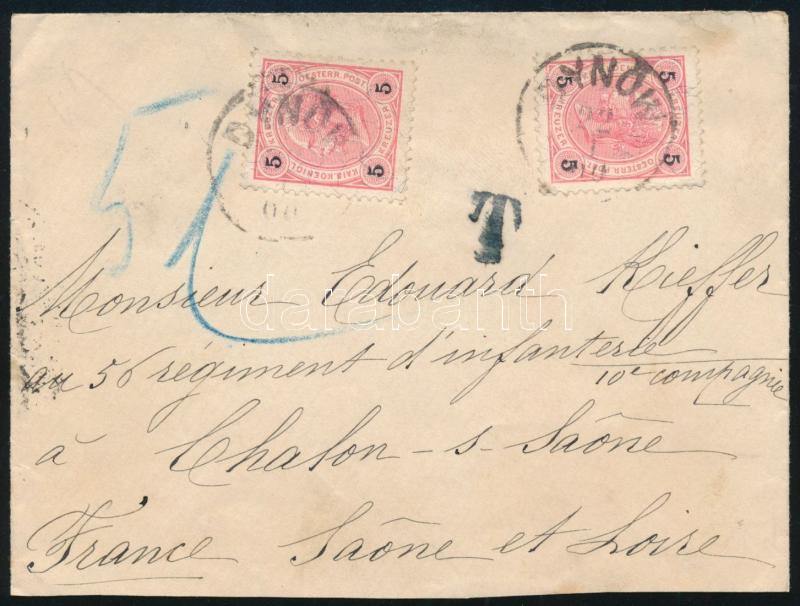 5 5 5 5
OESTERR. POST
KREUZER
KAIS. KOENIGL.
DYNÓW
00
5 5 5 5
OESTERR. POST
KREUZER
DYNÓW
00
T
51
Monsieur Edouard Kieffer
au 56 régiment d'infanterie
10e compagnie
à Chalon-s-Saône
France Saône et Loire
darabanth